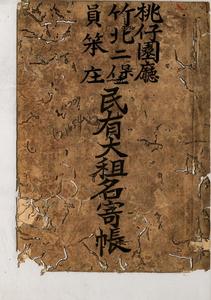 桃仔園廳
竹北二堡
員笨庄
民有大租名寄帳